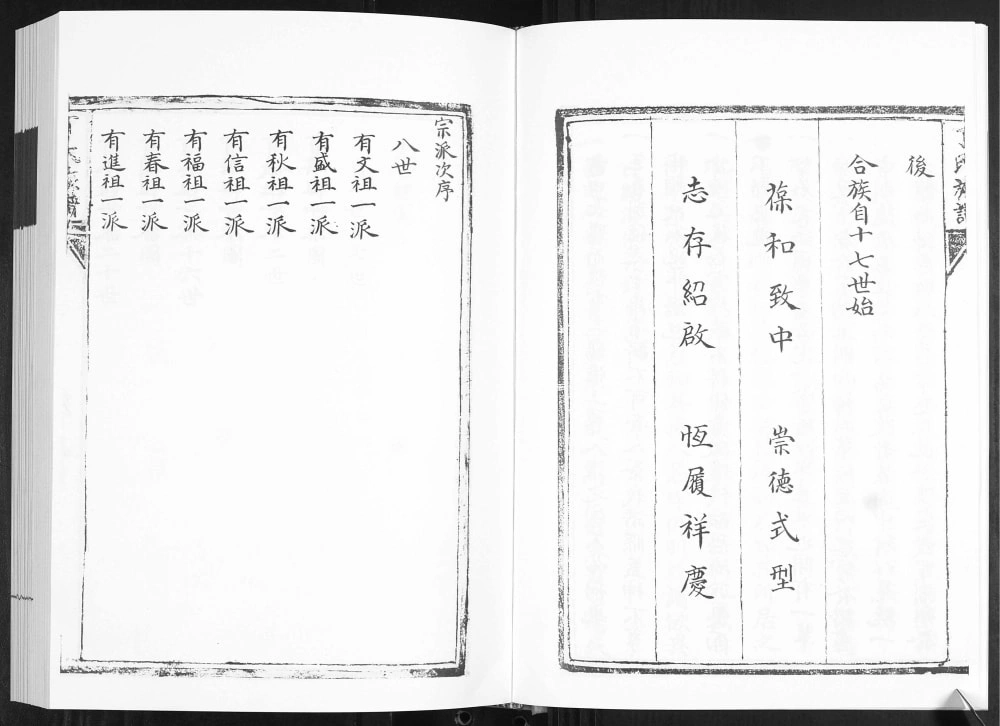 丁氏族譜
後
合族自十七世始
葆和致中　崇德式型
志存紹啟　恆履祥慶
宗派次序
八世
有文祖一派
有盛祖一派
有秋祖一派
有信祖一派
有福祖一派
有春祖一派
有進祖一派
丁氏族譜